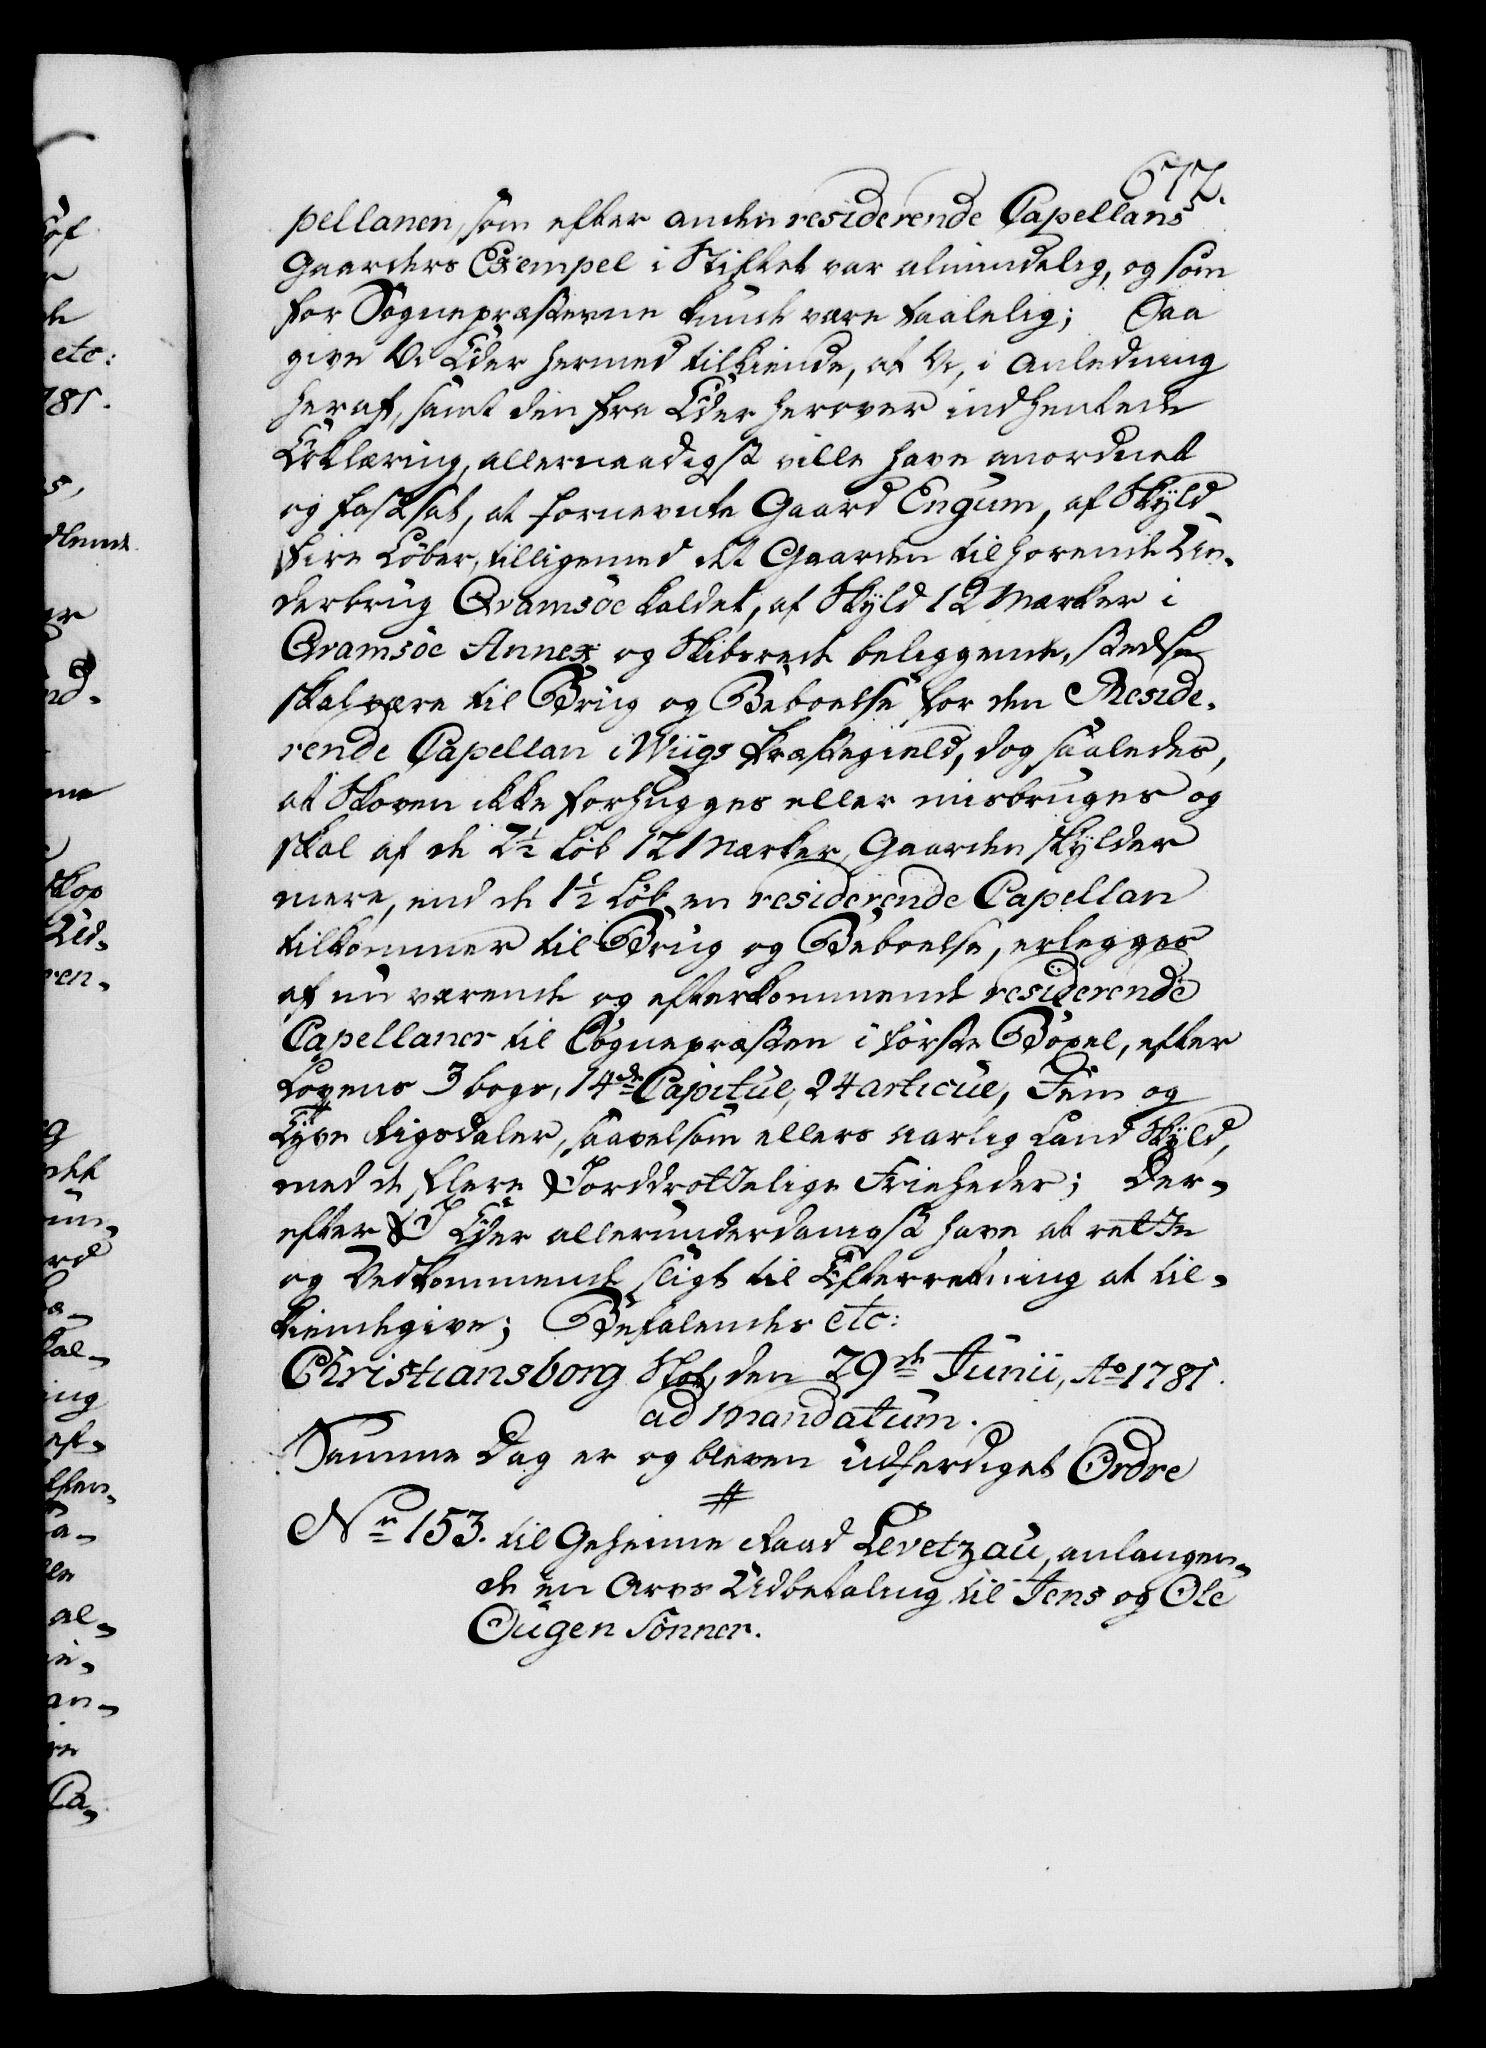 672.
pellanen, som efter anden residerende Capellans
Gaarders Exempel i Stiftet var almindelig, og som
for Sognepræsterne kunde være taalelig; Saa
give Vi Eder hermed tilkiende, at Vi, i Anledning
heraf, samt den fra Eder herover indhentede
Erklæring, allernaadigst ville have anordnet
og fastsat, at fornevnte Gaard Engum, af Skyld
fire Løber, tilligemed det Gaarden tilhørende Un-
derbrug Qvamsöe kaldet, af Skyld 12 Marker i
Qvamsöe Annex og Skibrede beliggende, stedse
skal være til Brug og Beboelse for den Reside-
rende Capellan i Wiigs Præstegield, dog saaledes,
at Skoven ikke forhugges eller misbruges og
skal af de 2½ Løb 12 Marker, Gaarden skylder
mere, end de 1½ Løb en residerende Capellan
tilkommer til Brug og Beboelse, erlegges
af nu værende og efterkommende residerende
Capellaner til Sognepræsten i første Bøxel, efter
Lovens 3 bogs, 14de Capitul, 24 articul, Fem og
Tyve Rigsdaler, saavelsom ellers aarlig Land Skyld,
med de flere Jorddrottelige Frieheder; Der-
efter I Eder allerunderdanigst have at rette
og Vedkommende sligt til Efterretning at til-
kiendegive; Befalendes etc:
Christiansborg Slot, den 29de Junii, Ao 1781.
ad mandatum.
Samme Dag er og bleven udferdiget Ordre
Nr 153. til Geheime Raad Levetzau, anlangen-
de en Arvs Udbetaling til Jens og Ole
Ougen Sønner.